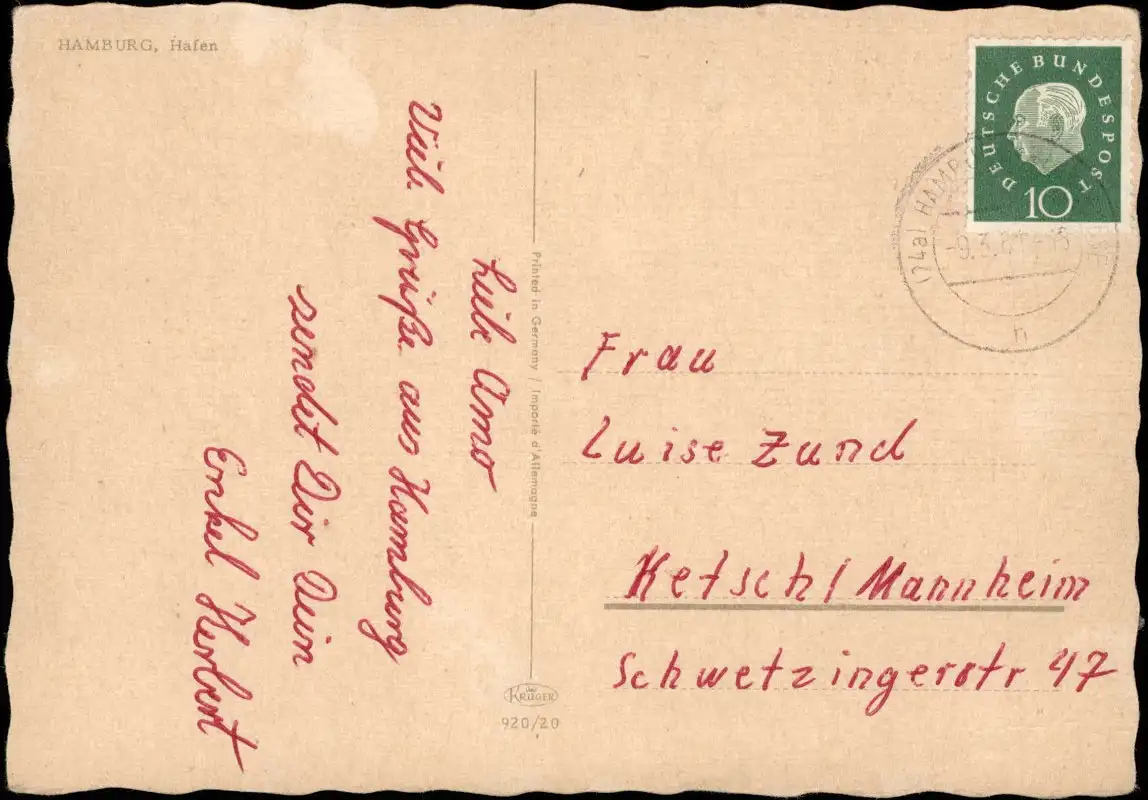 HAMBURG, Hafen
DEUTSCHE BUNDESPOST
10
(24a) HAMBURG
-9.3.61-18
n
Liebe Amo
Viele Grüße aus Hamburg
sendet Dir Dein
Enkel Herbert
Printed in Germany / Importé d'Allemagne
KRÜGER
920/20
Frau
Luise Zund
Ketsch/Mannheim
Schwetzingerstr 47